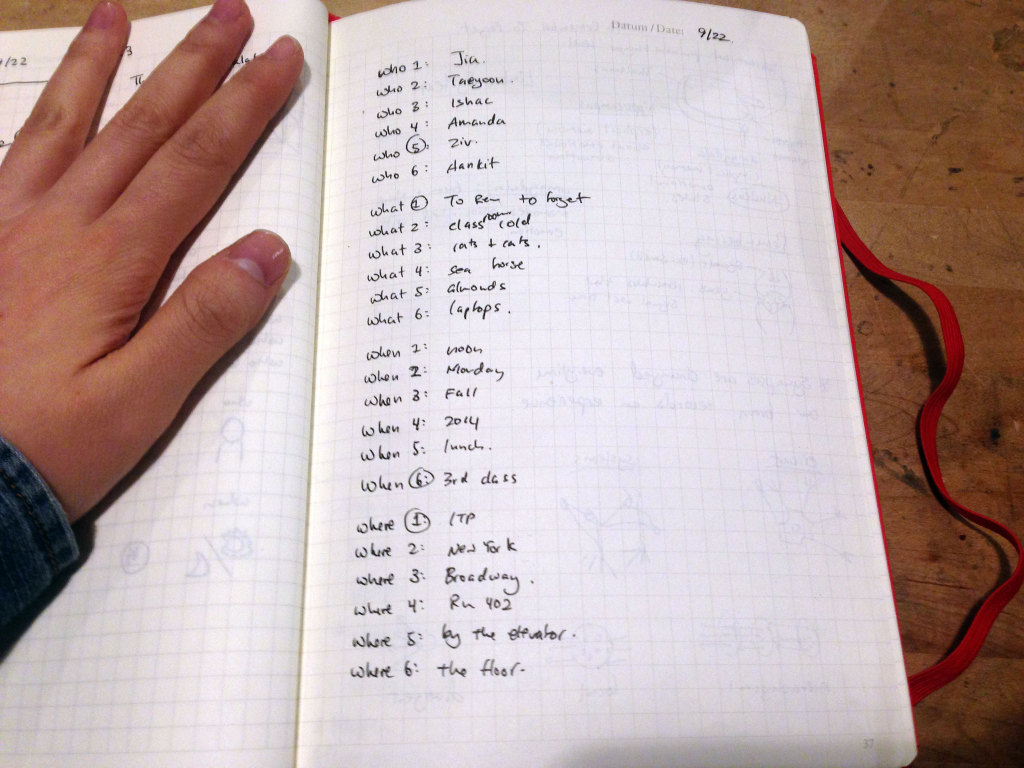 Datum / Date: 9/22
who 1: Jia.
who 2: Taeyoon.
who 3: Ishac
who 4: Amanda
who 5: Ziv.
who 6: Aankit
what 1 To Rem to forget
what 2: classroom cold
what 3: cats + cats.
what 4: sea horse
what 5: almonds
what 6: laptops.
when 1: noon
when 2: Monday
when 3: Fall
when 4: 2014
when 5: lunch.
when 6: 3rd class
where 1: ITP
where 2: New York
where 3: Broadway.
where 4: Rm 402
where 5: by the elevator.
where 6: the floor.
37